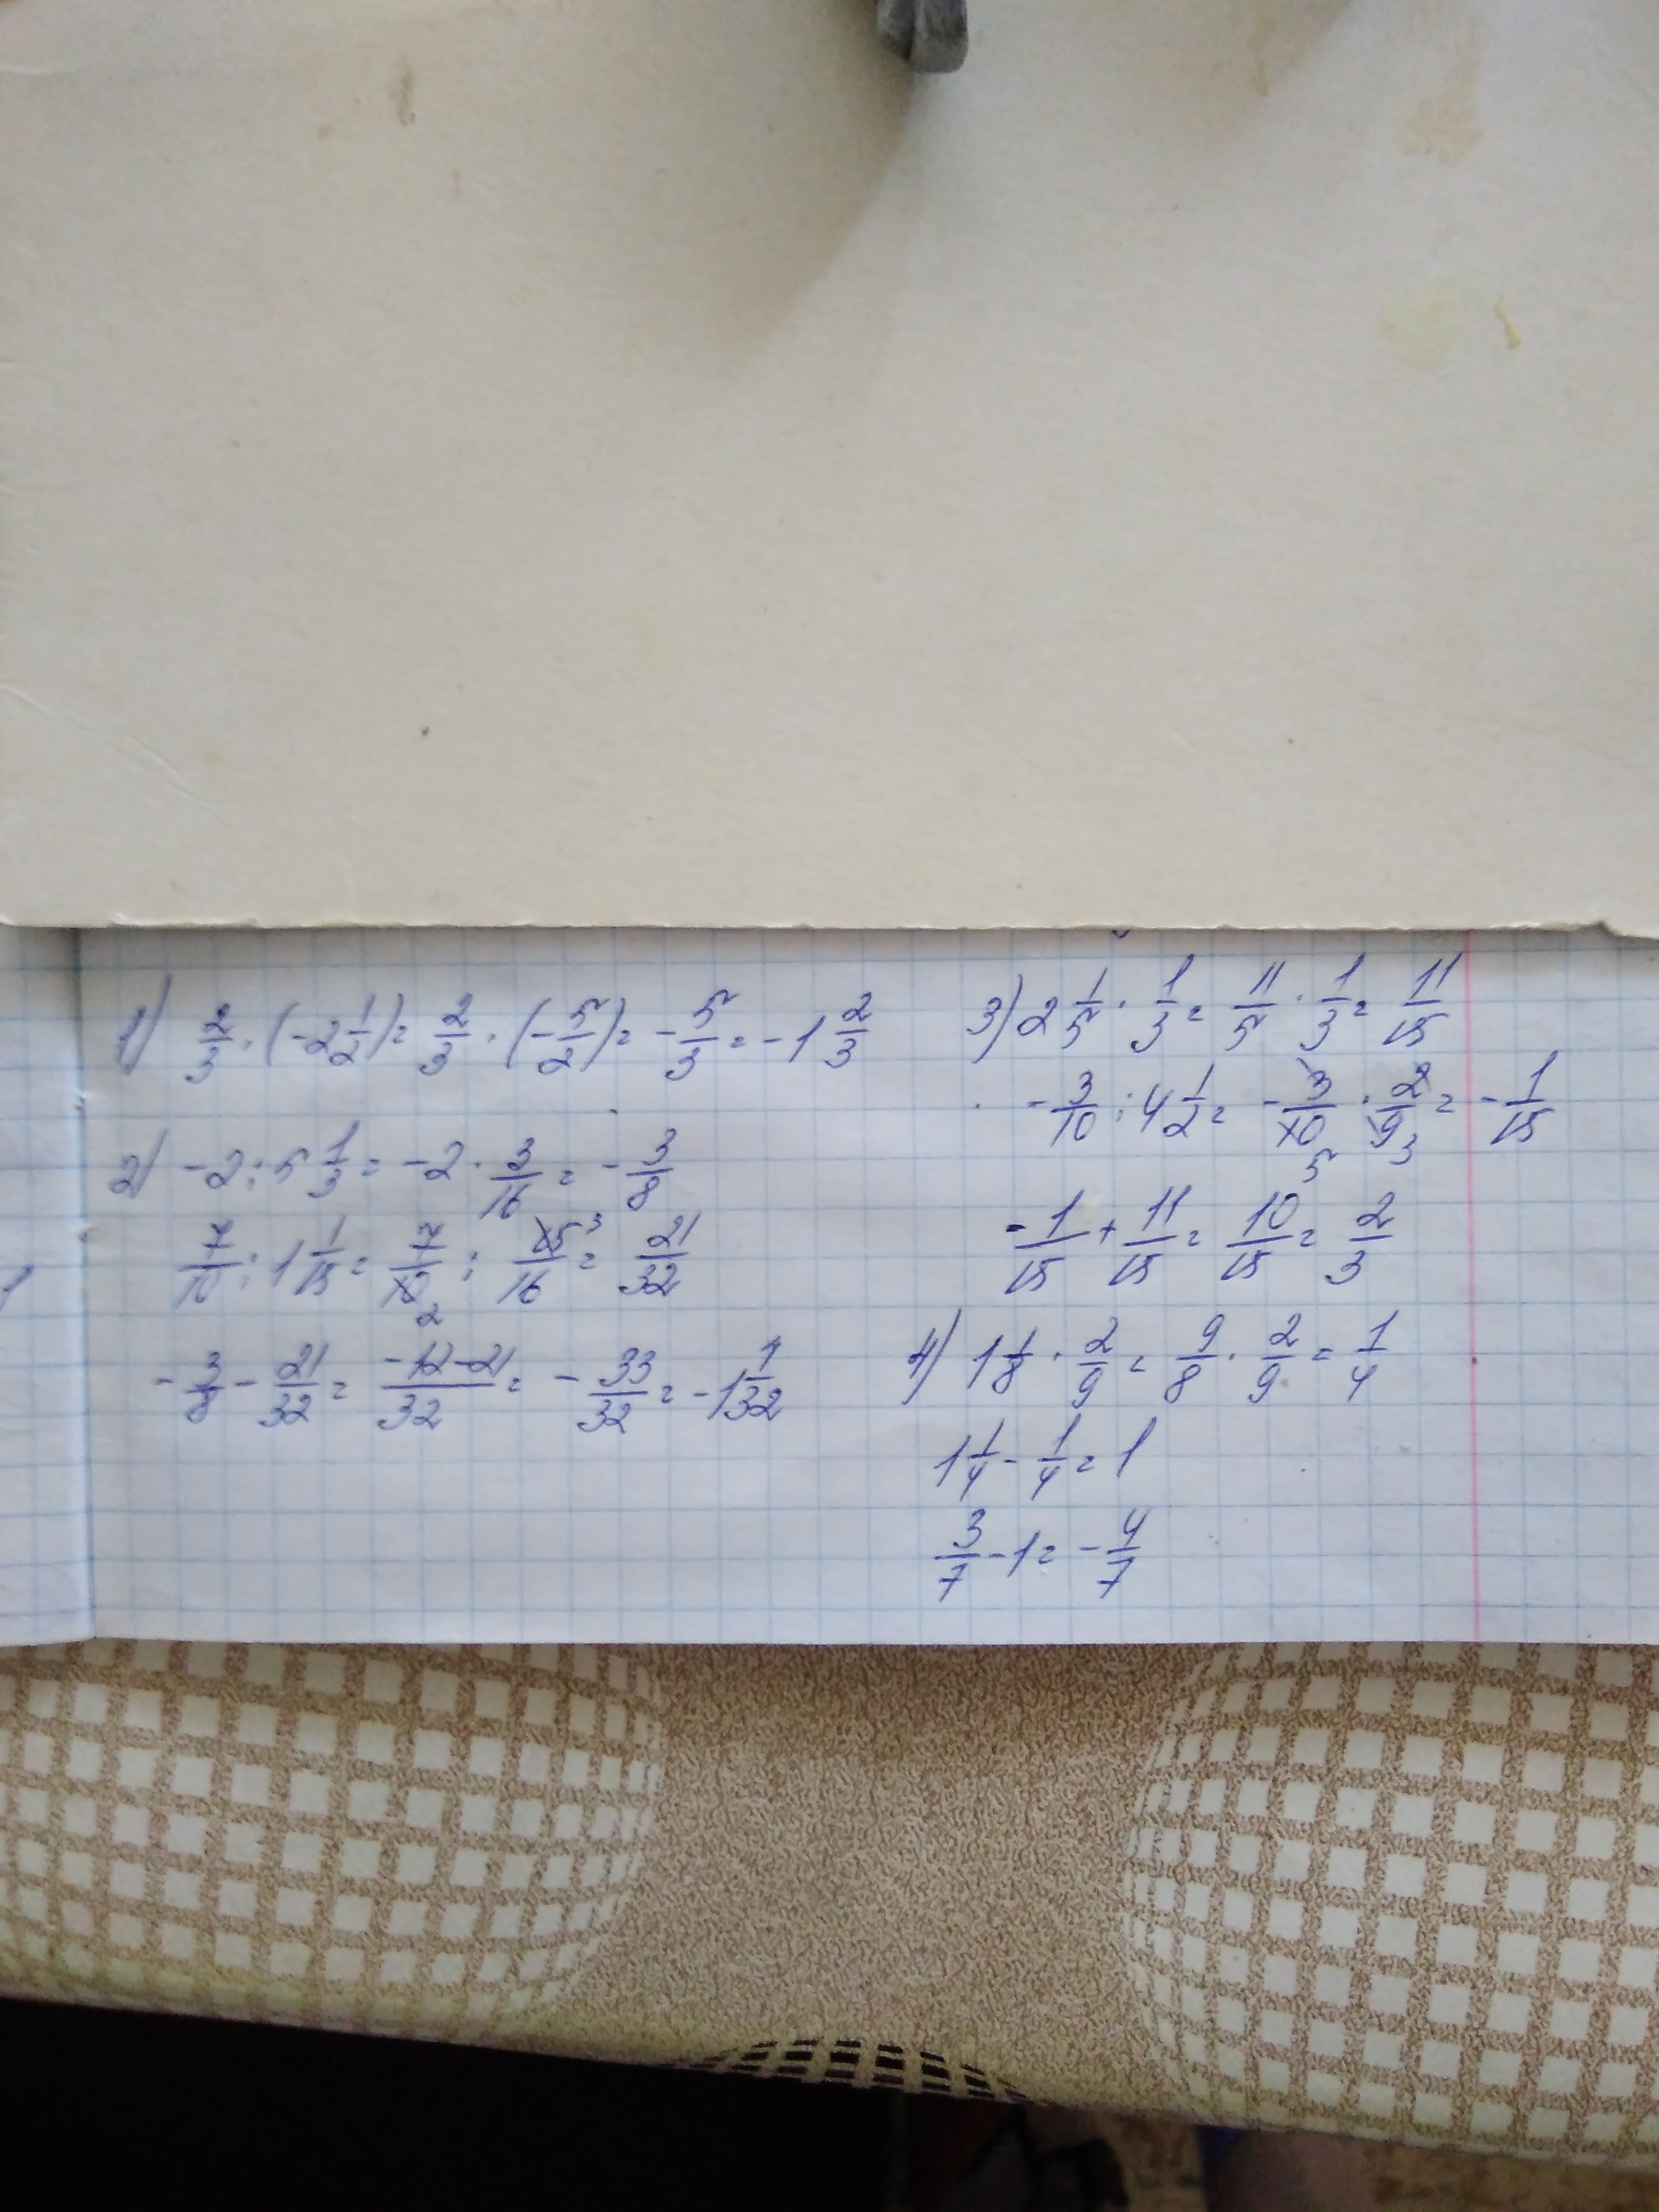 1) 2/3 · (-2 1/2) = 2/3 · (-5/2) = -5/3 = -1 2/3
2) -2 : 5 1/3 = -2 · 3/16 = -3/8
7/10 : 1 1/15 = 7/10 2 : 15 3/16 = 21/32
-3/8 - 21/32 = -12-21/32 = -33/32 = -1 1/32
3) 2 1/5 · 1/3 = 11/5 · 1/3 = 11/15
-3/10 : 4 1/2 = -3/10 5 · 2/9 3 = -1/15
-1/15 + 11/15 = 10/15 = 2/3
4) 1 1/8 · 2/9 = 9/8 · 2/9 = 1/4
1 1/4 - 1/4 = 1
3/7 - 1 = -4/7